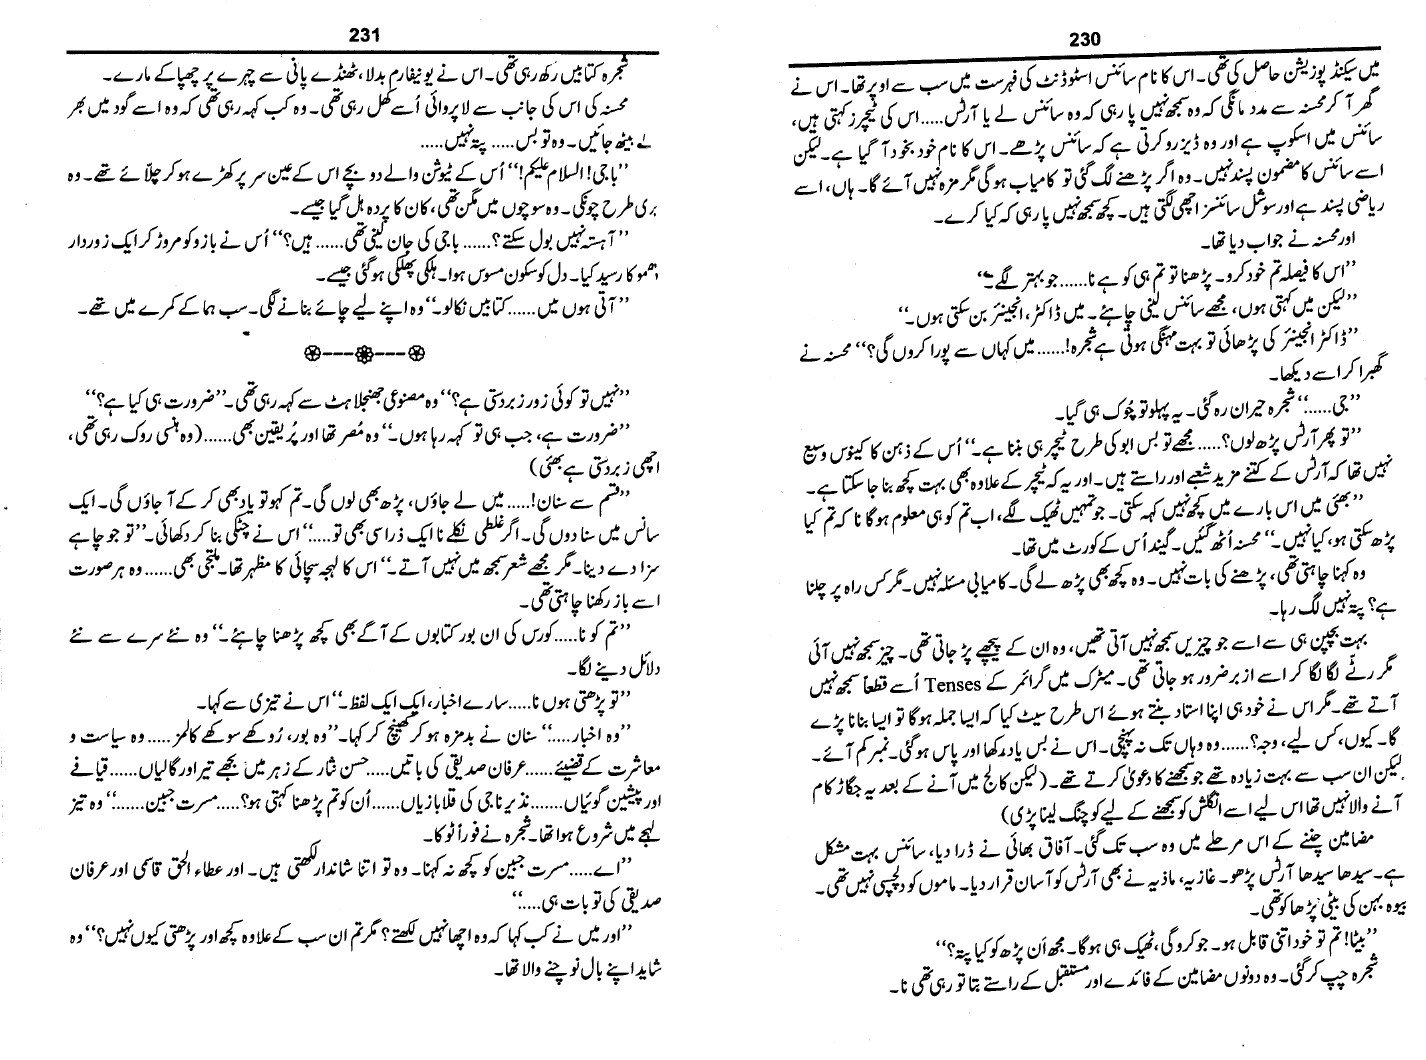 230
میں سیکنڈ پوزیشن حاصل کی تھی۔ اس کا نام سائنس اسٹوڈنٹ کی فہرست میں سب سے اوپر تھا۔ اس نے
گھر آ کر محسنہ سے مدد مانگی کہ وہ سمجھ نہیں پا رہی کہ وہ سائنس لے یا آرٹس..... اس کی ٹیچرز کہتی ہیں،
سائنس میں اسکوپ ہے اور وہ ڈیزرو کرتی ہے کہ سائنس پڑھے۔ اس کا نام خود بخود آ گیا ہے۔ لیکن
اسے سائنس کا مضمون پسند نہیں۔ وہ اگر پڑھنے لگ گئی تو کامیاب ہوگی مگر مزہ نہیں آئے گا۔ ہاں، اسے
ریاضی پسند ہے اور سوشل سائنسز اچھی لگتی ہیں۔ کچھ سمجھ نہیں پا رہی کہ کیا کرے۔
اور محسنہ نے جواب دیا تھا۔
”اس کا فیصلہ تم خود کرو۔ پڑھنا تو تم ہی کو ہے نا...... جو بہتر لگے۔“
”لیکن میں کہتی ہوں، مجھے سائنس لینی چاہئے۔ میں ڈاکٹر، انجینئر بن سکتی ہوں۔“
”ڈاکٹر انجینئر کی پڑھائی تو بہت مہنگی ہوتی ہے شجرہ!...... میں کہاں سے پورا کروں گی؟“ محسنہ نے
گھبرا کر اسے دیکھا۔
”جی.....“ شجرہ حیران رہ گئی۔ یہ پہلو تو چُوک ہی گیا۔
”تو پھر آرٹس پڑھ لوں؟..... مجھے تو بس ابو کی طرح ٹیچر ہی بننا ہے۔“ اُس کے ذہن کا کینوس وسیع
نہیں تھا کہ آرٹس کے کتنے مزید شعبے اور راستے ہیں۔ اور یہ کہ ٹیچر کے علاوہ بھی بہت کچھ بنا جا سکتا ہے۔
”بھئی میں اس بارے میں کچھ نہیں کہہ سکتی۔ جو تمہیں ٹھیک لگے، اب تم کو ہی معلوم ہوگا نا کہ تم کیا
پڑھ سکتی ہو، کیا نہیں۔“ محسنہ اُٹھ گئیں۔ گیند اُس کے کورٹ میں تھا۔
وہ کہنا چاہتی تھی، پڑھنے کی بات نہیں۔ وہ کچھ بھی پڑھ لے گی۔ کامیابی مسئلہ نہیں۔ مگر کس راہ پر چلنا
ہے؟ پتہ نہیں لگ رہا۔
بہت بچپن ہی سے اسے جو چیزیں سمجھ نہیں آتی تھیں، وہ ان کے پیچھے پڑ جاتی تھی۔ چیز سمجھ نہیں آئی
مگر رٹے لگا لگا کر اسے ازبر ضرور ہو جاتی تھی۔ میٹرک میں گرائمر کے Tenses اُسے قطعاً سمجھ نہیں
آتے تھے۔ مگر اس نے خود ہی اپنا استاد بنتے ہوئے اس طرح سیٹ کیا کہ ایسا جملہ ہوگا تو ایسا بنانا پڑے
گا۔ کیوں، کس لیے، وجہ؟...... وہ وہاں تک نہ پہنچی۔ اس نے بس یاد رکھا اور پاس ہوگئی۔ نمبر کم آئے۔
لیکن ان سب سے بہت زیادہ تھے جو سمجھنے کا دعویٰ کرتے تھے۔ (لیکن کالج میں آنے کے بعد یہ جگاڑ کام
آنے والا نہیں تھا اس لیے اسے انگلش کو سمجھنے کے لیے کوچنگ لینا پڑی)
مضامین چننے کے اس مرحلے میں وہ سب تک گئی۔ آفاق بھائی نے ڈرا دیا، سائنس بہت مشکل
ہے۔ سیدھا سیدھا آرٹس پڑھو۔ غازیہ، ماذیہ نے بھی آرٹس کو آسان قرار دیا۔ ماموں کو دلچسپی نہیں تھی۔
بیوہ بہن کی بیٹی پڑھا کو تھی۔
”بیٹا! تم تو خود اتنی قابل ہو۔ جو کرو گی، ٹھیک ہی ہوگا۔ مجھ اَن پڑھ کو کیا پتہ؟“
شجرہ چپ کر گئی۔ وہ دونوں مضامین کے فائدے اور مستقبل کے راستے بتا تو رہی تھی نا۔
231
شجرہ کتابیں رکھ رہی تھی۔ اس نے یونیفارم بدلا، ٹھنڈے پانی سے چہرے پر چھپاکے مارے۔
محسنہ کی اس کی جانب سے لاپروائی اُسے کھل رہی تھی۔ وہ کب کہہ رہی تھی کہ وہ اسے گود میں بھر
لے بیٹھ جائیں۔ وہ تو بس..... پتہ نہیں.....
”باجی! السلام علیکم!“ اُس کے ٹیوشن والے دو بچے اس کے عین سر پر کھڑے ہو کر چلّائے تھے۔ وہ
بری طرح چونکی۔ وہ سوچوں میں مگن تھی، کان کا پردہ ہل گیا جیسے۔
”آہستہ نہیں بول سکتے؟...... باجی کی جان لینی تھی...... ہیں؟“ اُس نے بازو کو مروڑ کر ایک زوردار
دھموکا رسید کیا۔ دل کو سکون مسوس ہوا۔ ہلکی پھلکی ہو گئی جیسے۔
”آتی ہوں میں...... کتابیں نکالو۔“ وہ اپنے لیے چائے بنانے لگی۔ سب ہما کے کمرے میں تھے۔
”نہیں تو کوئی زور زبردستی ہے؟“ وہ مصنوعی جھنجلاہٹ سے کہہ رہی تھی۔ ”ضرورت ہی کیا ہے؟“
”ضرورت ہے، جب ہی تو کہہ رہا ہوں۔“ وہ مُصر تھا اور پُریقین بھی...... (وہ ہنسی روک رہی تھی،
اچھی زبردستی ہے بھئی)
”قسم سے سنان!..... میں لے جاؤں، پڑھ بھی لوں گی۔ تم کہو تو یاد بھی کر کے آ جاؤں گی۔ ایک
سانس میں سنا دوں گی۔ اگر غلطی نکلے نا ایک ذرا سی بھی تو.....“ اس نے چٹکی بنا کر دکھائی۔ ”تو جو چاہے
سزا دے دینا۔ مگر مجھے شعر سمجھ میں نہیں آتے۔“ اس کا لہجہ سچائی کا مظہر تھا۔ ملتجی بھی...... وہ ہر صورت
اسے باز رکھنا چاہتی تھی۔
”تم کو نا..... کورس کی ان بور کتابوں کے آگے بھی کچھ پڑھنا چاہئے۔“ وہ نئے سرے سے نئے
دلائل دینے لگا۔
”تو پڑھتی ہوں نا..... سارے اخبار، ایک ایک لفظ۔“ اس نے تیزی سے کہا۔
”وہ اخبار.....“ سنان نے بدمزہ ہو کر کھینچ کر کہا۔ ”وہ بور، رُوکھے سوکھے کالمز..... وہ سیاست و
معاشرت کے قضیئے...... عرفان صدیقی کی باتیں..... حسن نثار کے زہر میں بجھے تیر اور گالیاں...... قیافے
اور پیشین گوئیاں....... نذیر ناجی کی قلابازیاں..... اُن کو تم پڑھنا کہتی ہو؟..... مسرت جبین......“ وہ تیز
لہجے میں شروع ہوا تھا۔ شجرہ نے فوراً ٹوکا۔
”اے..... مسرت جبین کو کچھ نہ کہنا۔ وہ تو اتنا شاندار لکھتی ہیں۔ اور عطاء الحق قاسمی اور عرفان
صدیقی کی تو بات ہی.....“
”اور میں نے کب کہا کہ وہ اچھا نہیں لکھتے؟ مگر تم ان سب کے علاوہ کچھ اور پڑھتی کیوں نہیں؟“ وہ
شاید اپنے بال نوچنے والا تھا۔